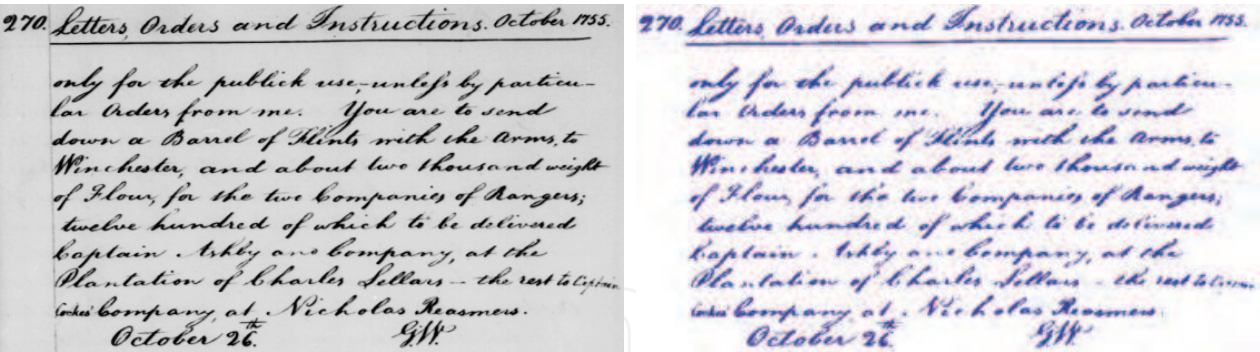 270. Letters, Orders and Instructions. October 1755.
only for the publick use, unleſs by particu-
lar Orders from me. You are to send
down a Barrel of Flints with the Arms, to
Winchester, and about two thousand weight
of Flour, for the two Companies of Rangers;
twelve hundred of which to be delivered
Captain Ashby and Company, at the
Plantation of Charles Sellars - the rest to Captain
Cockes' Company, at Nicholas Reasmers.
October 26.th G.W.
270. Letters, Orders and Instructions. October 1755.
only for the publick use, unleſs by particu-
lar Orders from me. You are to send
down a Barrel of Flints with the Arms, to
Winchester, and about two thousand weight
of Flour, for the two Companies of Rangers;
twelve hundred of which to be delivered
Captain Ashby and Company, at the
Plantation of Charles Sellars - the rest to Captain
Cockes' Company, at Nicholas Reasmers.
October 26.th G.W.